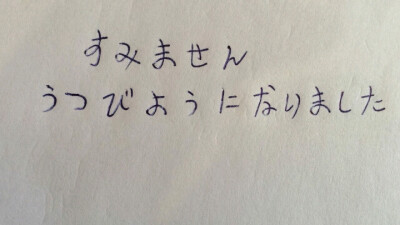 すみません
うつびようになりました